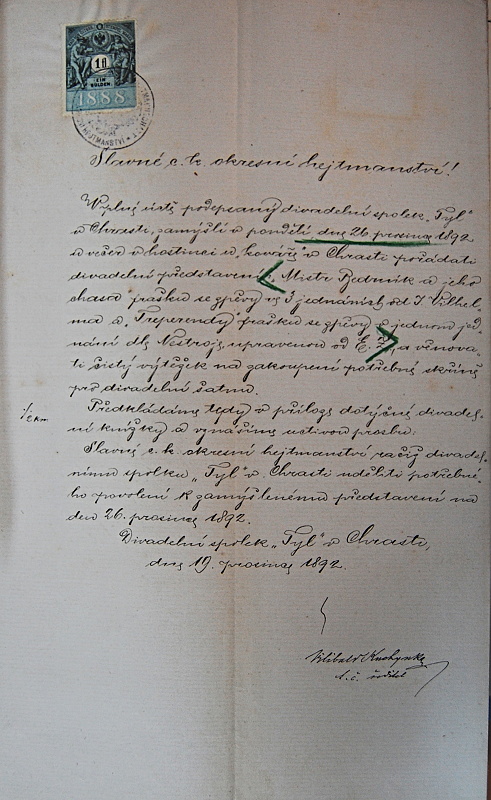 1 fl
EIN
GULDEN
1888
HEJTMANSTVÍ
Slavné c. k. okresní hejtmanství!
V plné úctě podepsaný divadelní spolek „Tyl“
v Chrasti, zamýšlí v pondělí dne 26 prosince 1892
o večer v hostinci u „kováře“ v Chrasti pořádati
divadelní představení: Mistr Bedrník a jeho
chasa frašku se zpěvy ve 3 jednáních od J. Vilhel-
ma a „Treperendy“ frašku se zpěvy o jednom jed-
nání dle Nestroje upravenou od E. a věnova-
ti čistý výtěžek na zakoupení potřebné skříně
pro divadelní šatnu.
½ km
Předkládáme tedy v příloze dotyčné divadel-
ní knížky a vynášíme uctivou prosbu:
Slavné c. k. okresní hejtmanství račiž divadel-
nímu spolku „Tyl“ v Chrasti uděliti potřebné-
ho povolení k zamýšlenému představení na
den 26. prosince 1892.
Divadelní spolek „Tyl“ v Chrasti,
dne 19. prosince 1892.
Vilibald Kuchynka
t. č. ředitel